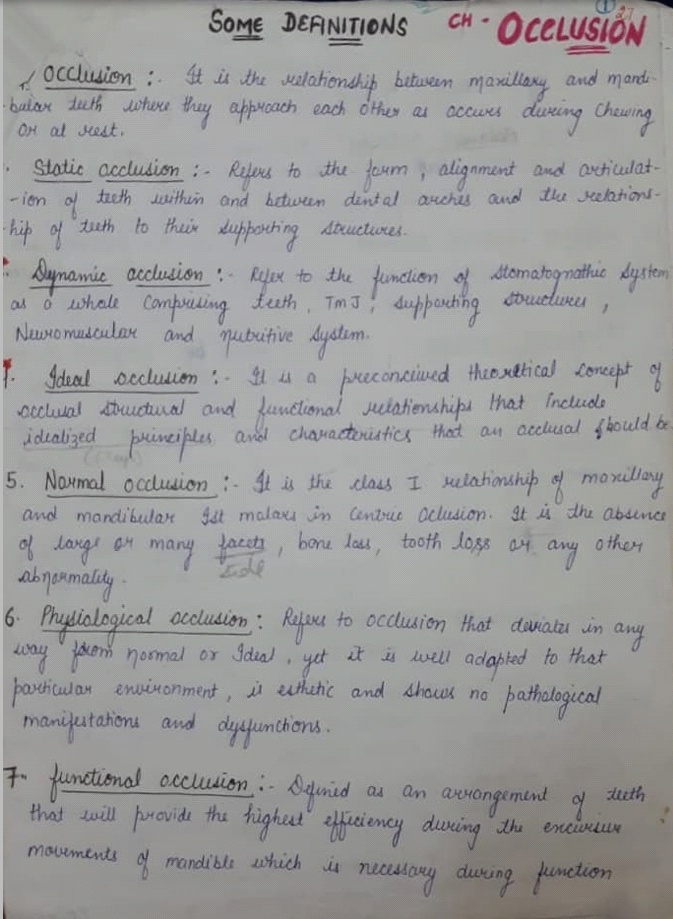 SOME DEFINITIONS CH - OCCLUSION
1 27
Occlusion :- It is the relationship between maxillary and mandi-
bular teeth where they approach each other as occurs during chewing
or at rest.
Static occlusion :- Refers to the form, alignment and articulat-
-ion of teeth within and between dental arches and the relations-
hip of teeth to their supporting structures.
Dynamic occlusion :- Refer to the function of stomatognathic system
as a whole comprising teeth, TMJ, supporting structures,
Neuromuscular and nutritive system.
Ideal occlusion :- It is a preconceived theoretical concept of
occlusal structural and functional relationships that include
idealized principles and characteristics that an occlusal should be
5. Normal occlusion :- It is the class I relationship of maxillary
and mandibular Ist molars in centric oclusion. It is the absence
of large or many facets, bone loss, tooth loss or any other
side
abnormality.
6. Physiological occlusion : Refers to occlusion that deviates in any
way from normal or Ideal, yet it is well adapted to that
particular environment, is esthetic and shows no pathological
manifestations and dysfunctions.
7. functional occlusion :- Defined as an arrangement of teeth
that will provide the highest efficiency during the excursive
movements of mandible which is necessary during function